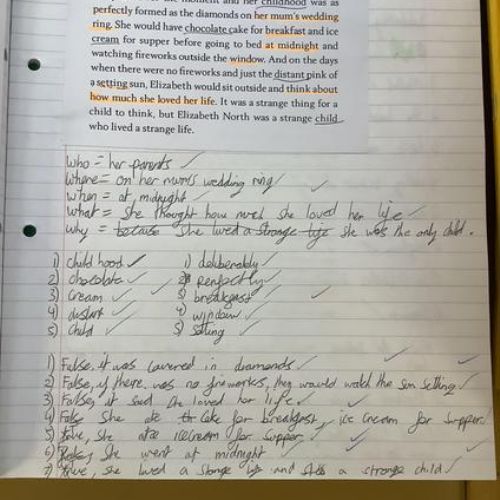 childhood was as
perfectly formed as the diamonds on her mum's wedding
ring. She would have chocolate cake for breakfast and ice
cream for supper before going to bed at midnight and
watching fireworks outside the window. And on the days
when there were no fireworks and just the distant pink of
a setting sun, Elizabeth would sit outside and think about
how much she loved her life. It was a strange thing for a
child to think, but Elizabeth North was a strange child
who lived a strange life.
Who = her parents
Where = on her mum's wedding ring
when = at midnight
what = She thought how much she loved her life
why = because she lived a strange life she was the only child.
1) Child hood 1) deliberably
2) chocolate 2) perfectly
3) cream 3) breakfast
4) distant 4) window
5) Child 5) setting
1) False, it was covered in diamonds
2) False, if there was no fireworks, they would watch the sun setting
3) False, it said she loved her life
4) False She ate cake for breakfast, ice cream for supper
5) True, She ate icecream for supper
6) She went at midnight
7) True, she lived a strange life and a strange child